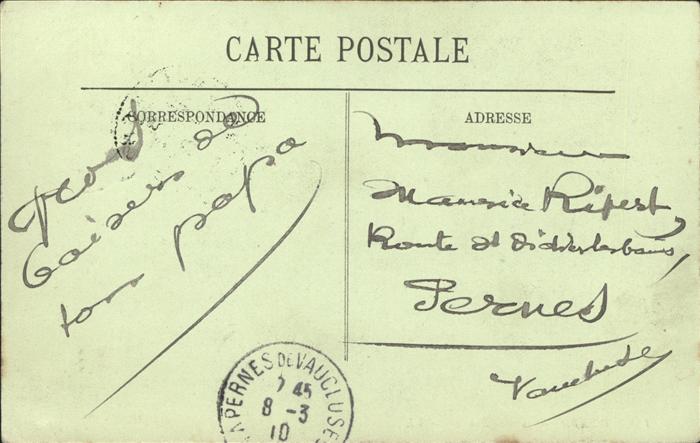 CARTE POSTALE
CORRESPONDANCE
baisers de
ton papa
ADRESSE
Monsieur
Maurice Ripert,
Route St Didier les bains,
Pernes
Vaucluse
PERNES DE VAUCLUSE
7 45
8 - 3
10